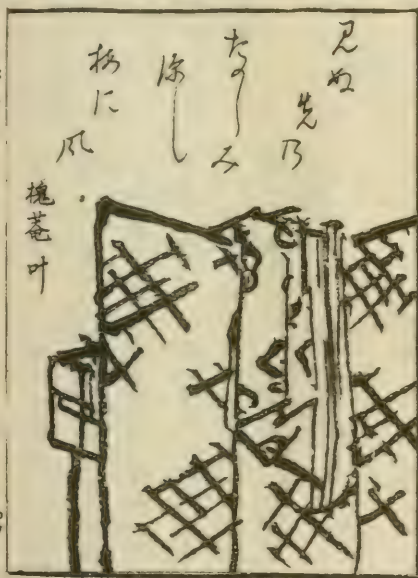 見ぬ
先乃
たのしみ
深し
梅に
風
槐菴叶